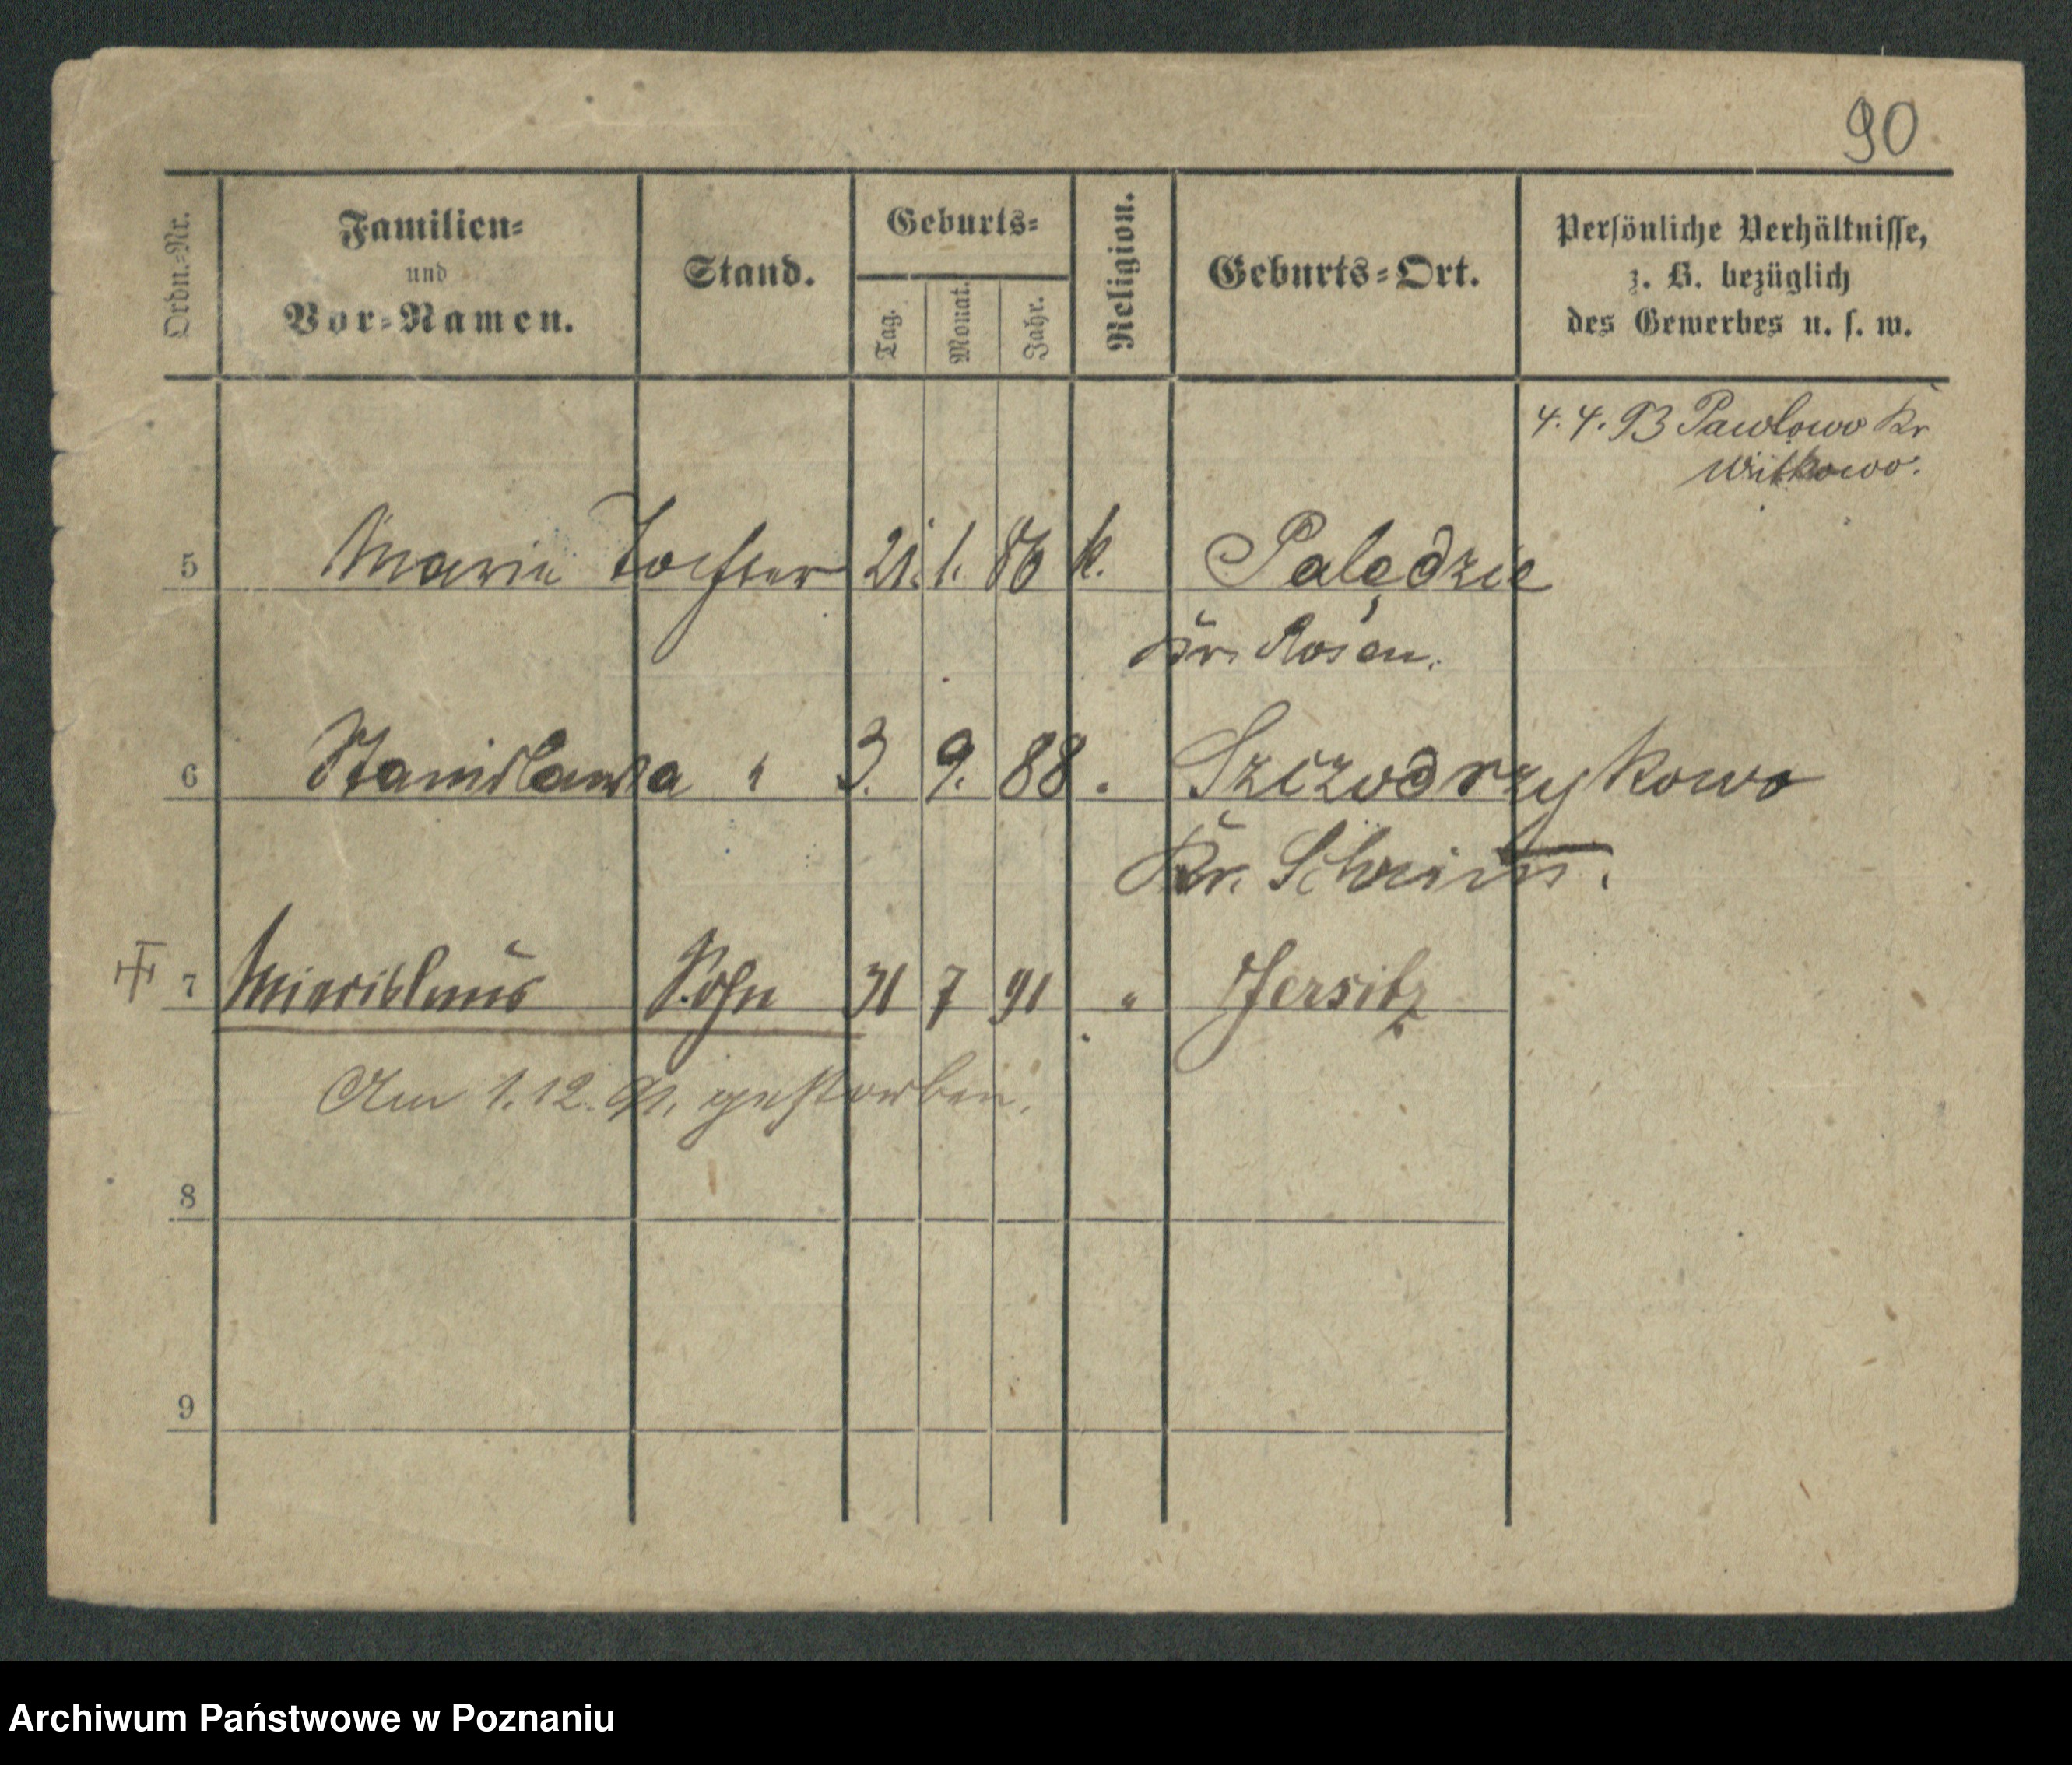 90
Ordn.-Nr.
Familien-
und
Vor-Namen.
Stand.
Geburts-
Tag.
Monat.
Jahr.
Religion.
Geburts-Ort.
Persönliche Verhältnisse,
z. B. bezüglich
des Gewerbes u. s. w.
4. 4. 93 Pawlowo Kr
Witkowo.
5 Marie Tochter 21. 1. 86 k. Palędzie
Kr. Posen.
6 Stanislawa " 3. 9. 88 . Szczodrzykowo
Kr. Schrimm.
7 Miecislaus Sohn 31 7 91 " Jersitz
Am 1. 12. 91. gestorben.
8
9
Archiwum Państwowe w Poznaniu